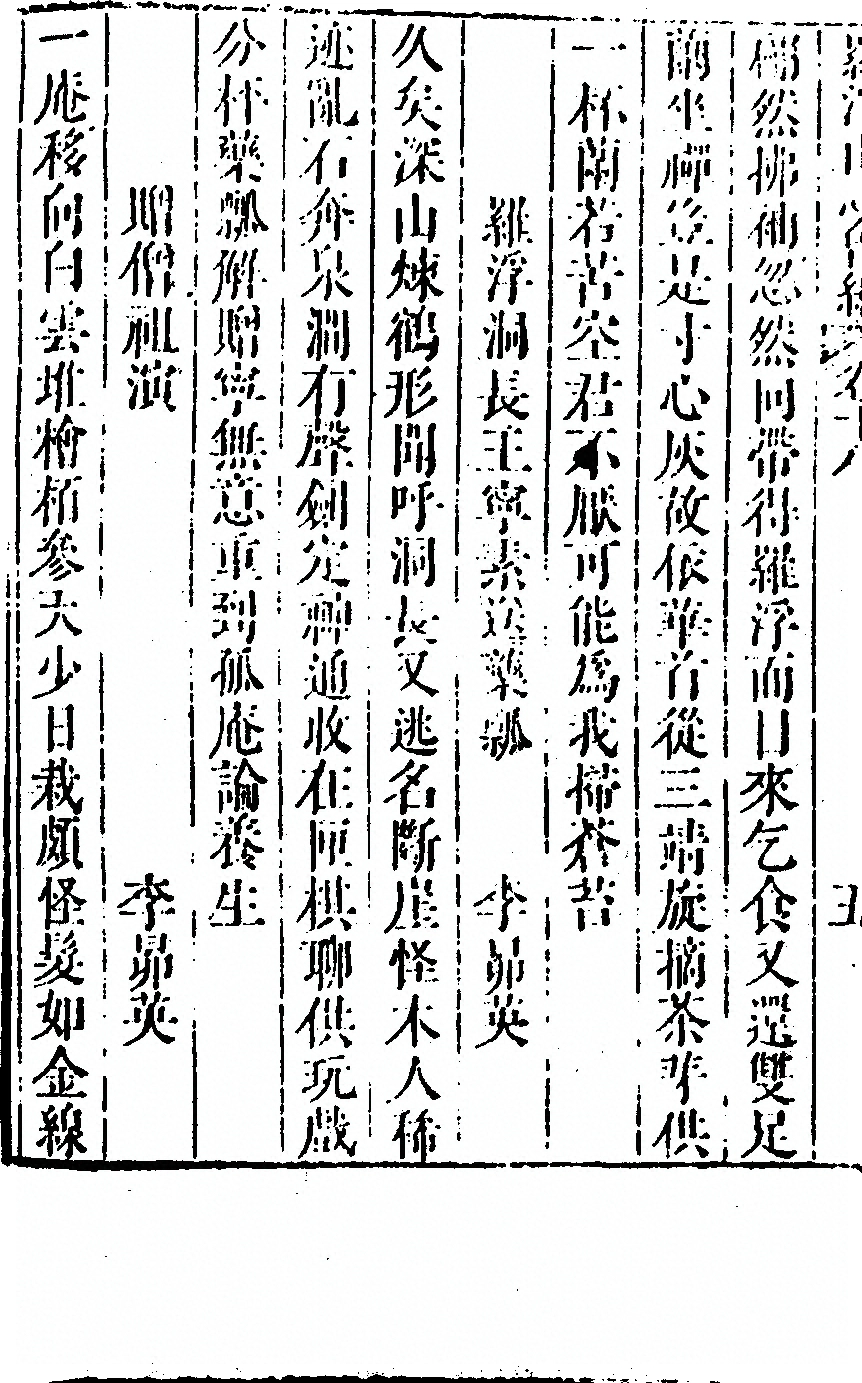 羅浮山 卷十八 五
翛然拂袖忽然回帶得羅浮面目來乞食又還雙足
繭坐禪豈是寸心灰故依華首從三請旋摘茶芽供
一杯蘭若苦空君不厭可能爲我掃蒼苔
羅浮洞長王寧素送藥瓢 李昴英
久矣深山煉鶴形聞呼洞長又逃名斷崖怪木人稀
迹亂石奔泉澗有聲劍定神通收在匣棋聊供玩戲
分枰藥瓢解贈寧無意重到孤庵論養生
贈僧祖演 李昴英
一庵移向白雲堆檜栢參天少日栽頗怪髮如金線